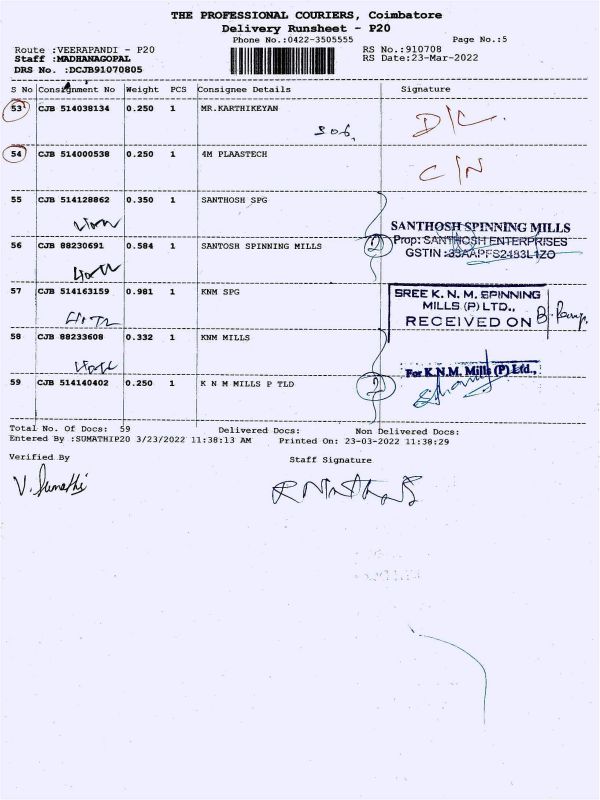 THE PROFESSIONAL COURIERS, Coimbatore
Delivery Runsheet - P20
Phone No.:0422-3505555 Page No.:5
Route :VEERAPANDI - P20 RS No.:910708
Staff :MADHANAGOPAL RS Date:23-Mar-2022
DRS No. :DCJB91070805
S No Consignment No Weight PCS Consignee Details Signature
53 CJB 514038134 0.250 1 MR.KARTHIKEYAN
306, D/L.
54 CJB 514000538 0.250 1 4M PLAASTECH
C/N
55 CJB 514128862 0.350 1 SANTHOSH SPG
SANTHOSH SPINNING MILLS
56 CJB 88230691 0.584 1 SANTOSH SPINNING MILLS 2 Prop: SANTHOSH ENTERPRISES
GSTIN :33AAPFS2483L1ZO
57 CJB 514163159 0.981 1 KNM SPG SREE K. N. M. SPINNING
MILLS (P) LTD.,
RECEIVED ON
58 CJB 88233608 0.332 1 KNM MILLS
For K.N.M. Mills (P) Ltd.,
59 CJB 514140402 0.250 1 K N M MILLS P TLD 2
Total No. Of Docs: 59 Delivered Docs: Non Delivered Docs:
Entered By :SUMATHIP20 3/23/2022 11:38:13 AM Printed On: 23-03-2022 11:38:29
Verified By Staff Signature
V. Sumathi